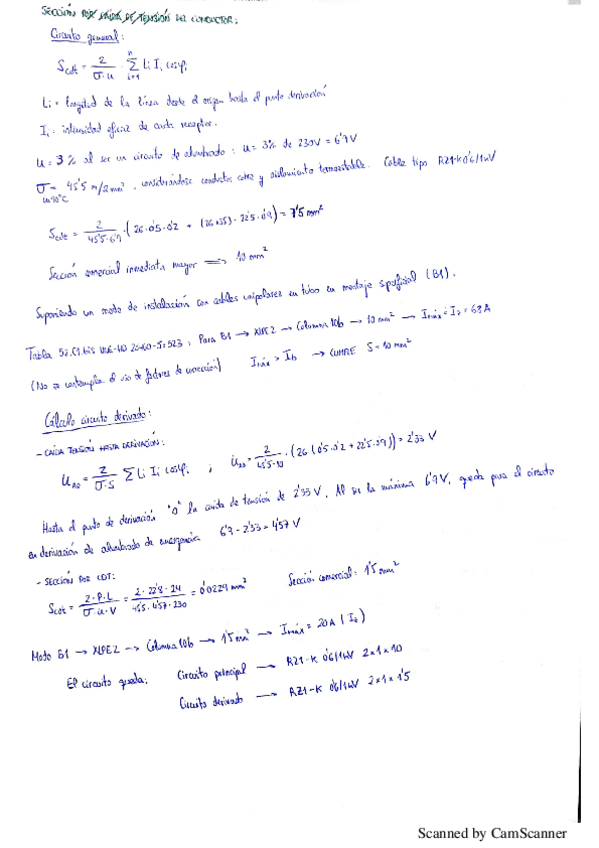 SECCIÓN POR CAÍDA DE TENSIÓN DEL CONDUCTOR:
Circuito general:
Scdt = 2/(σ·u) · Σ(i=1, n) Li Ii cosφi
Li = longitud de la línea desde el origen hasta el punto derivación
Ii = intensidad eficaz de cada receptor.
u = 3% al ser un circuito de alumbrado: u = 3% de 230V = 6'9 V
σ 90°C = 45'5 m/Ωmm², considerándose conductor cobre y aislamiento termoestable. Cable tipo RZ1-K 0'6/1kV
Scdt = 2/(45'5·6'9) · (26·0'5·0'2 + (26+35)·22'5·0'9) = 7'5 mm²
Sección comercial inmediata mayor => 10 mm²
Suponiendo un modo de instalación con cables unipolares en tubo en montaje superficial (B1).
Tabla 52.C1 bis UNE-HD 20460-5-523: Para B1 → XLPE2 → Columna 10b → 10 mm² → Imáx = Iz = 68 A
(No se contempla el uso de factores de corrección) Imáx > Ib → CUMPLE S = 10 mm²
Cálculo circuito derivado:
- CAÍDA TENSIÓN HASTA DERIVACIÓN:
= 2/(σ·S) Σ Li Ii cosφi ; = 2/(45'5·10) · (26(0'5·0'2 + 22'5·0'9)) = 2'33 V
Hasta el punto de derivación "0" la caída de tensión de 2'33 V. Al ser la máxima 6'9 V, queda para el circuito
en derivación de alumbrado de emergencia 6'9 - 2'33 = 4'57 V
- SECCIÓN POR CDT:
Scdt = 2·P·L/(σ·u·V) = 2·22'8·24/(45'5·4'57·230) = 0'0229 mm² Sección comercial: 1'5 mm²
Modo B1 → XLPE2 → Columna 10b → 1'5 mm² → Imáx = 20A (Iz)
El circuito queda: Circuito principal → RZ1-K 0'6/1kV 2x1x10
Circuito derivado → RZ1-K 0'6/1kV 2x1x1'5
Scanned by CamScanner